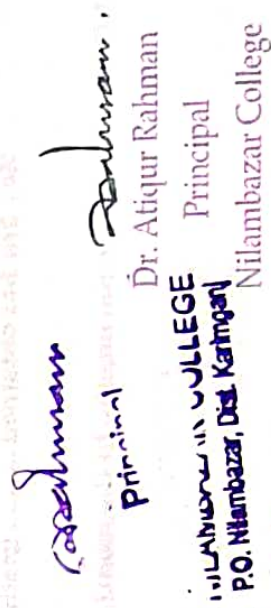 Principal
COLLEGE
P.O. Nilambazar, Dist. Karimganj
Dr. Atiqur Rahman
Principal
Nilambazar College